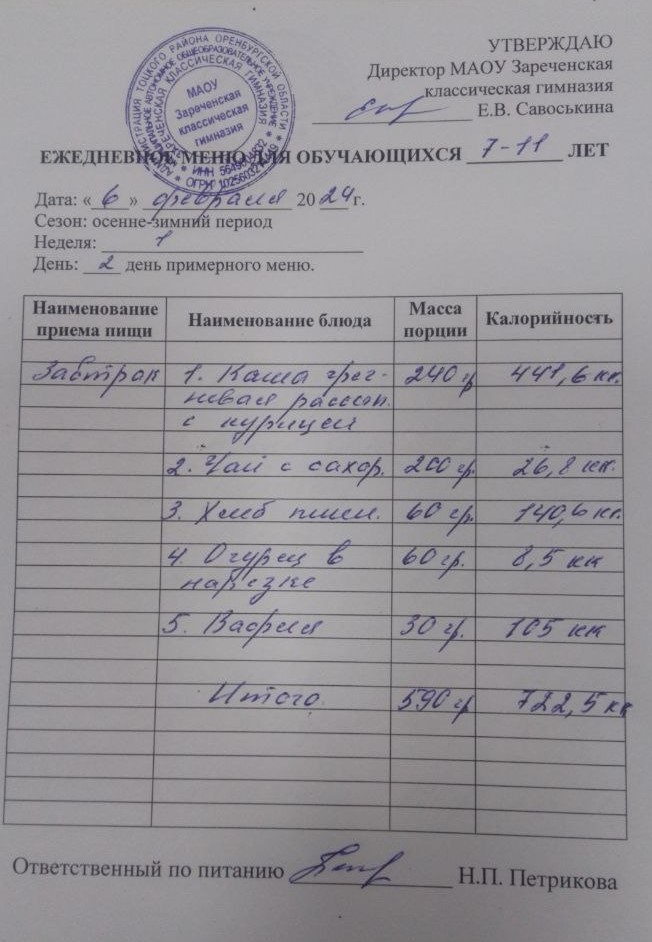 УТВЕРЖДАЮ
Директор МАОУ Зареченская
классическая гимназия
Е.В. Савоськина
АДМИНИСТРАЦИЯ ТОЦКОГО РАЙОНА ОРЕНБУРГСКОЙ ОБЛАСТИ
МУНИЦИПАЛЬНОЕ АВТОНОМНОЕ ОБЩЕОБРАЗОВАТЕЛЬНОЕ УЧРЕЖДЕНИЕ
ЗАРЕЧЕНСКАЯ КЛАССИЧЕСКАЯ ГИМНАЗИЯ
МАОУ
Зареченская
классическая
гимназия
ИНН
ОГРН
ЕЖЕДНЕВНОЕ МЕНЮ ДЛЯ ОБУЧАЮЩИХСЯ 7-11 ЛЕТ
Дата: «6» февраля 2024 г.
Сезон: осенне-зимний период
Неделя: 1
День: 2 день примерного меню.
Наименование приема пищи Наименование блюда Масса порции Калорийность
Завтрак 1. Каша греч- 240 гр 441,6 кк.
невая рассып.
с курицей
2. Чай с сахар. 200 гр. 26,8 кк.
3. Хлеб пшен. 60 гр. 140,6 кк.
4. Огурец в 60 гр. 8,5 кк
нарезке
5. Вафля 30 гр. 105 кк
Итого 590 гр 722,5 кк
Ответственный по питанию Н.П. Петрикова